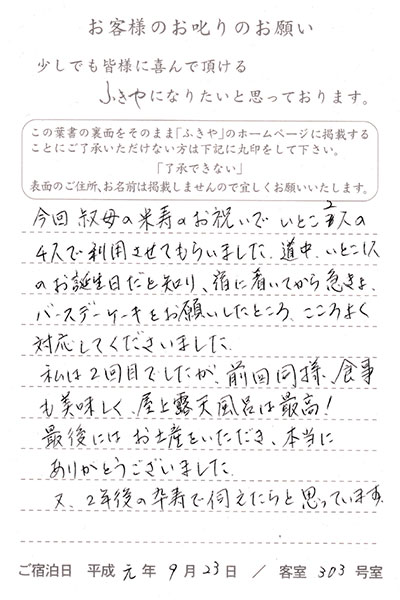 お客様のお叱りのお願い
少しでも皆様に喜んで頂ける
ふきやになりたいと思っております。
この葉書の裏面をそのまま「ふきや」のホームページに掲載する
ことにご了承いただけない方は下記に丸印をして下さい。
「了承できない」
表面のご住所、お名前は掲載しませんので宜しくお願いいたします。
今回 叔母の米寿のお祝いで いとこ2人の
4人で利用させてもらいました。道中、いとこ1人
のお誕生日だと知り、宿に着いてから急きょ、
バースデーケーキをお願いしたところ、こころよく
対応してくださいました。
私は2回目でしたが、前回同様、食事
も美味しく、屋上露天風呂は最高!
最後には お土産をいただき、本当に
ありがとうございました。
又、2年後の卆寿で伺えたらと思っています。
ご宿泊日 平成 元 年 9 月 23 日 / 客室 303 号室